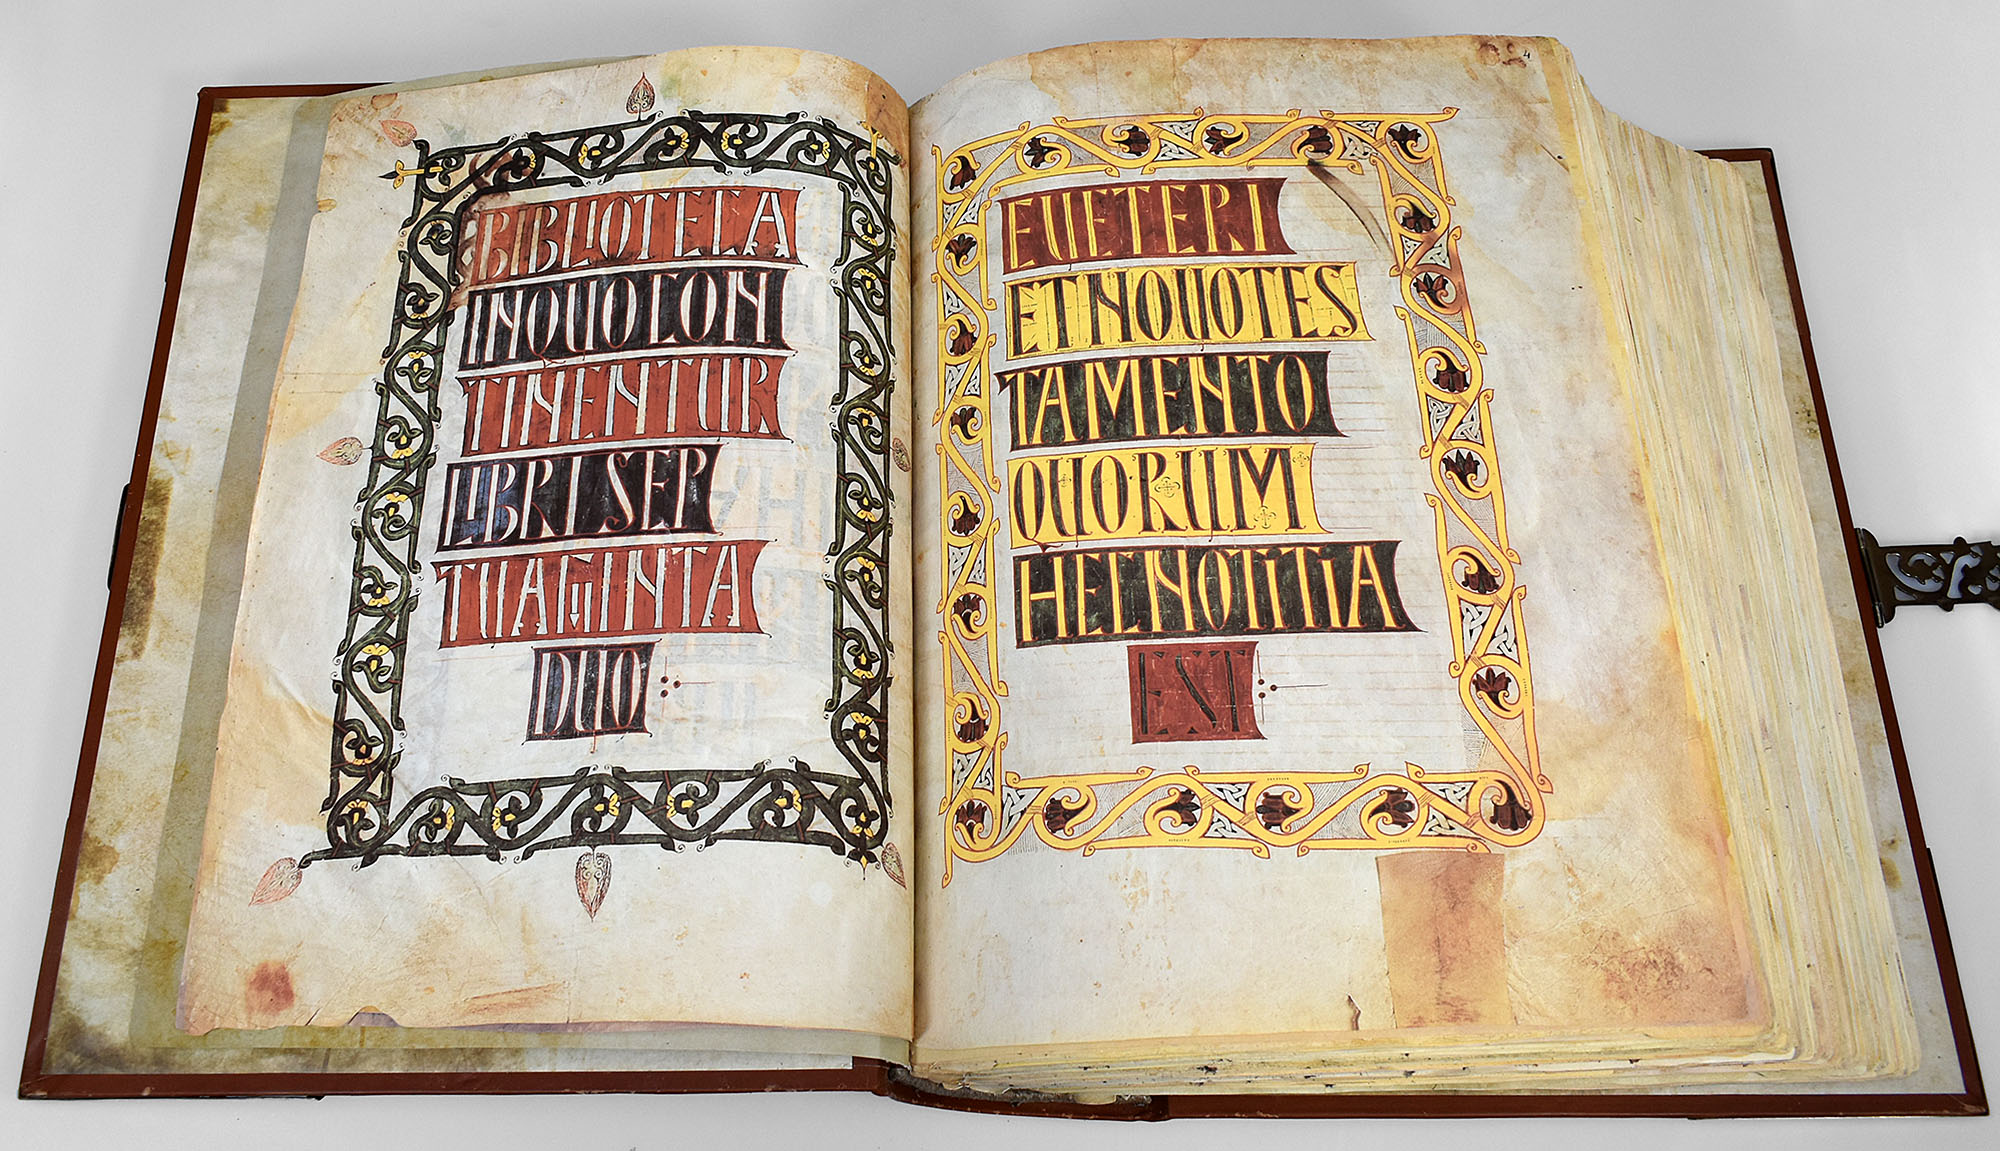 BIBLIOTECA
INQUOCON
TINENTUR
LIBRI SEP
TUAGINTA
DUO
4
EUETERI
ETNOUOTES
TAMENTO
QUORUM
HECNOTITIA
EST